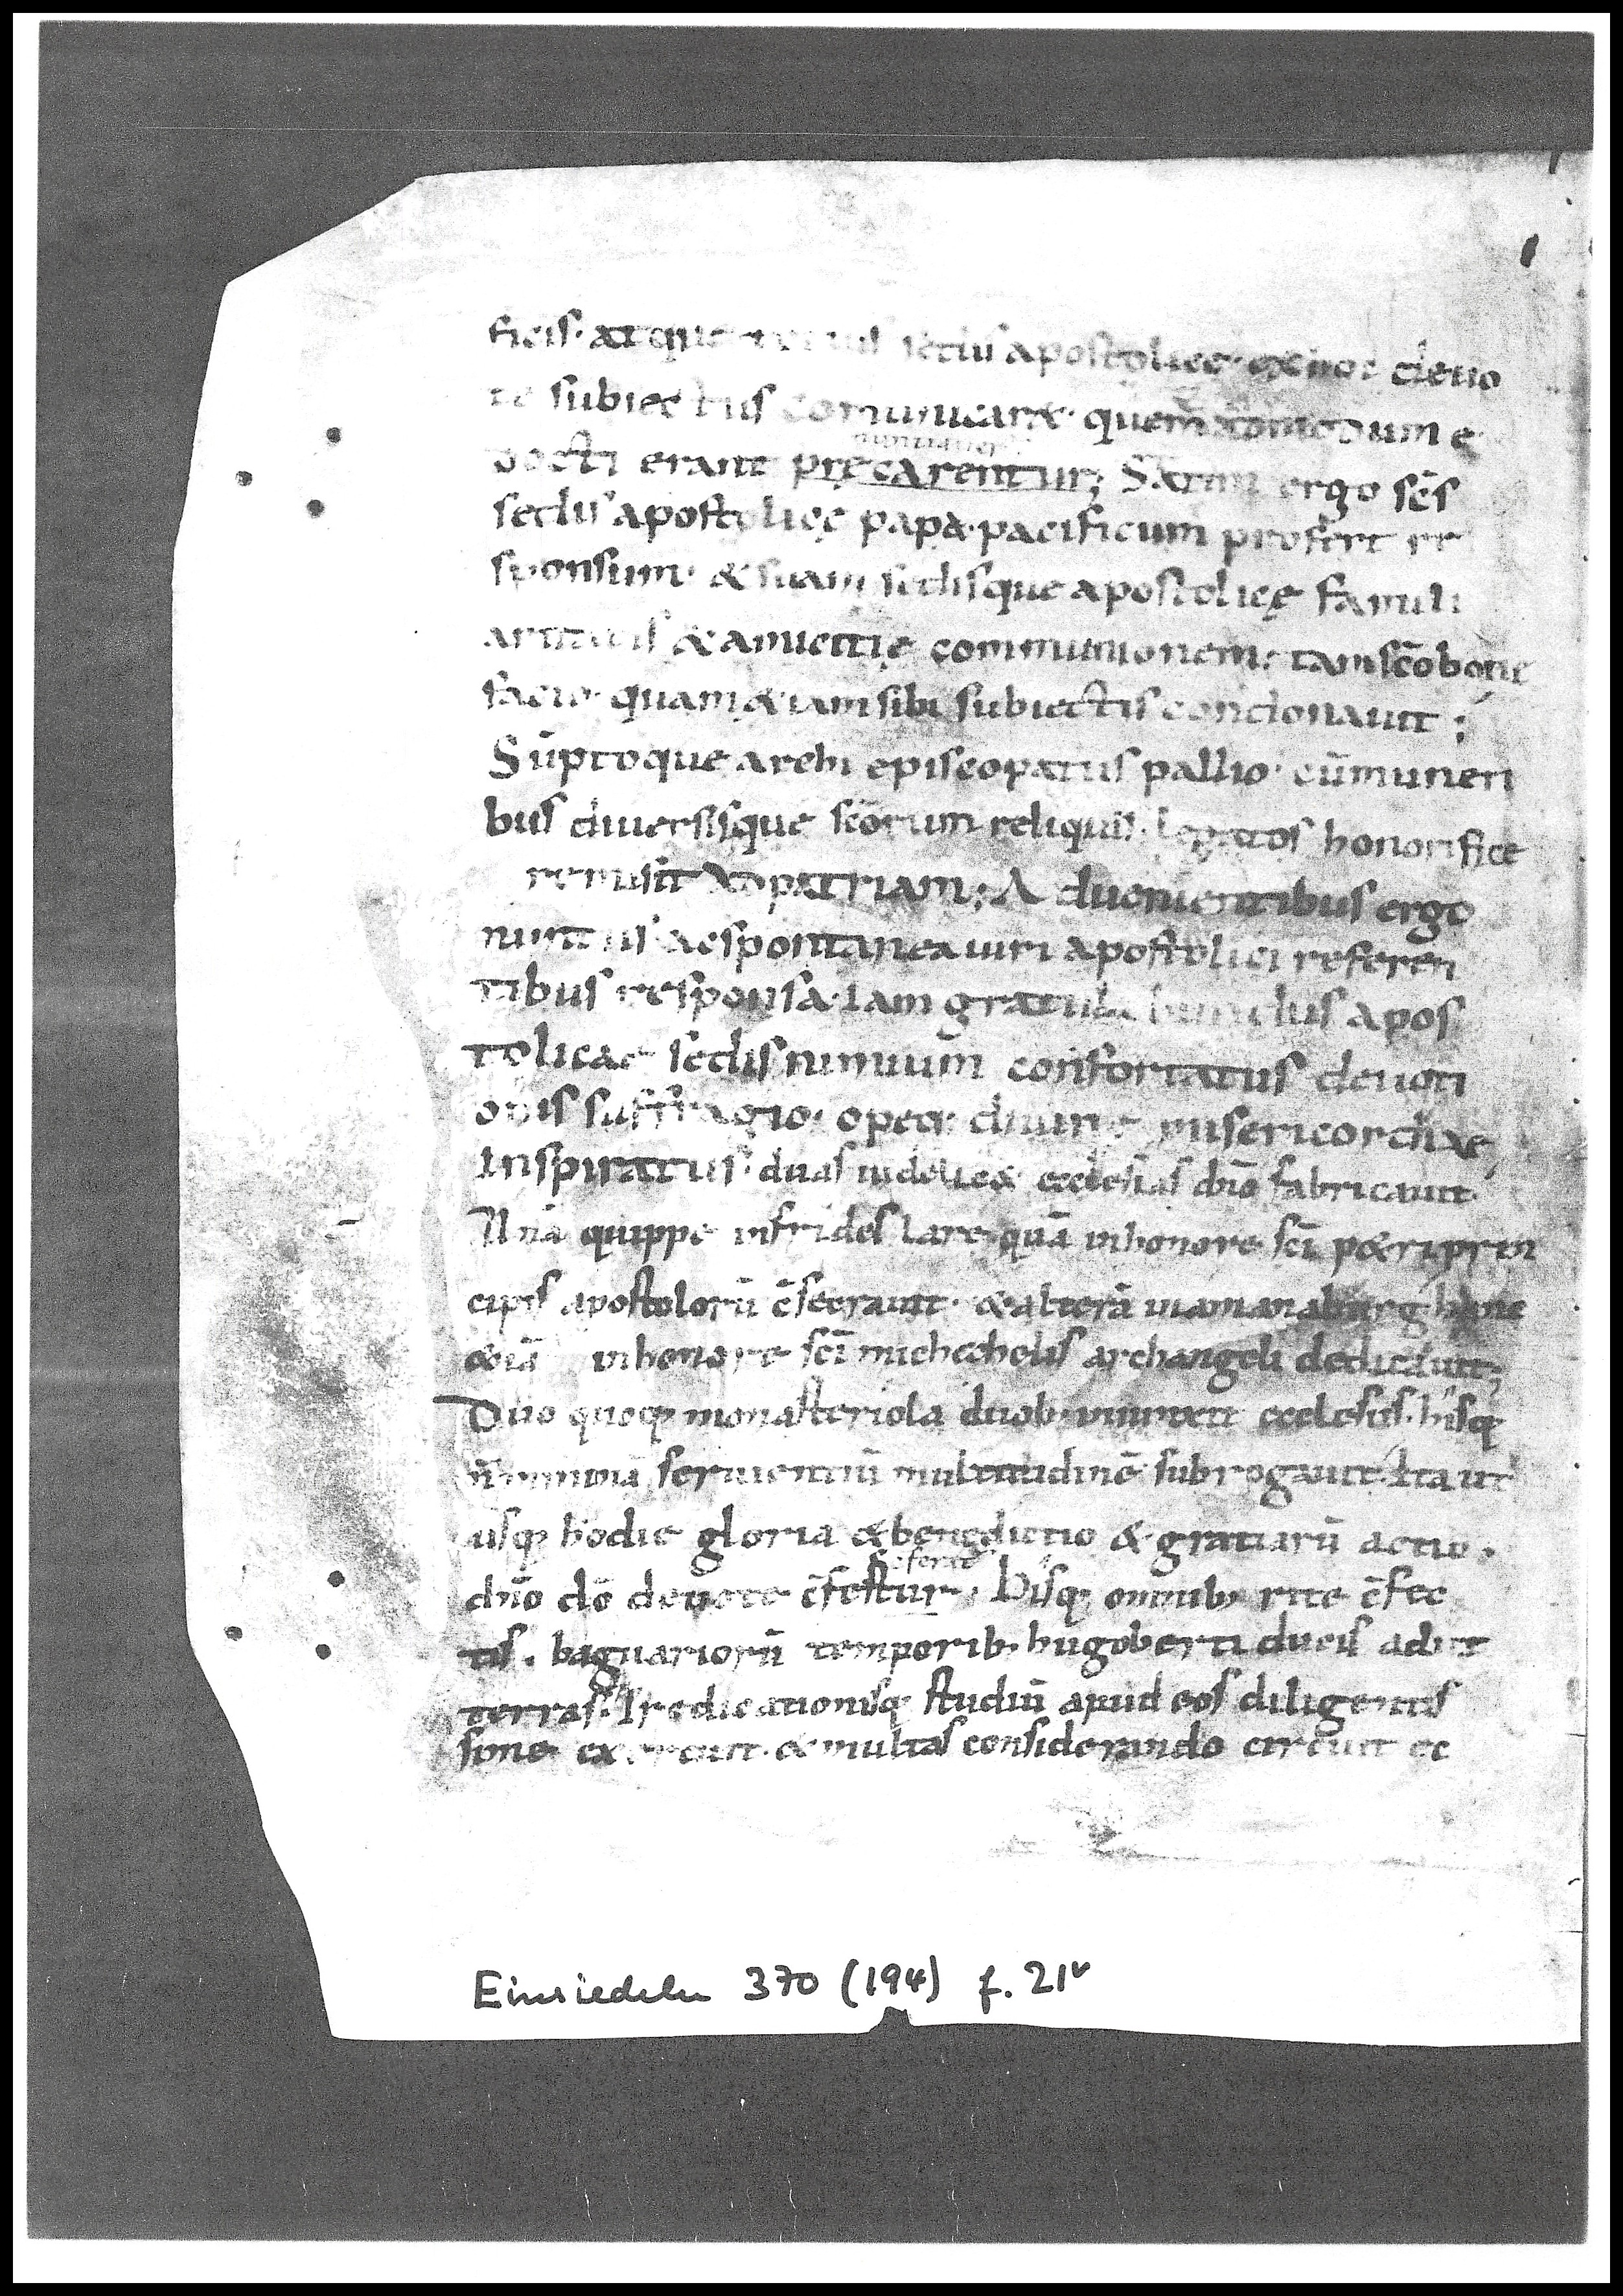 ficis· atque totius sedis apostolicę· ex hoc deuo
te subiectus comunicar&· quemadmodum e
docti erant pręcarentur; Statim ergo scs̄
sedis apostolicę papa· pacificum profert re
sponsum· & suam sedisque apostolicę famili
aritatis & amicitię communionem· tam scō boni
facio· quam &iam sibi subiectis condonauit;
Sūptoque archi episcopatus pallio· cū muneri
bus diuersisque scōrum reliquiis· legatos honorifice
remisit ad patriam; Aduenientibus ergo
nuntiis ac spontanea uiri apostolici referen
tibus responsa· iam gratulabundus apos
tolicae sedis nimium confortatus deuoti
onis suffragio· opeq; diuinę misericordiae
inspiratus· duas uidelic& ecclesias dnō fabricauit·
Unā quippe in frideslare· quā in honore scī p&ri prin
cipis apostolorū c̄secrauit· & alterā in amanaburg hanc
&iā in honore scī michahelis archangeli dedicauit;
Duo quoq; monasteriola duob; iunxit ecclesiis· hisq;
n̄ minimā seruientiū multitudinē subrogauit· Ita ut
usq; hodie gloria & benedictio & gratiarū actio·
refer&ur
dnō dō deuote c̄festur· Hisq; omnib; rite c̄fec
tis· baguariorū temporib; hugoberti ducis adiit
terras· Predicationisq; studiū apud eos diligentis
sime exercuit· & multas considerando circuit ec
Einsiedeln 370 (194) f. 21v